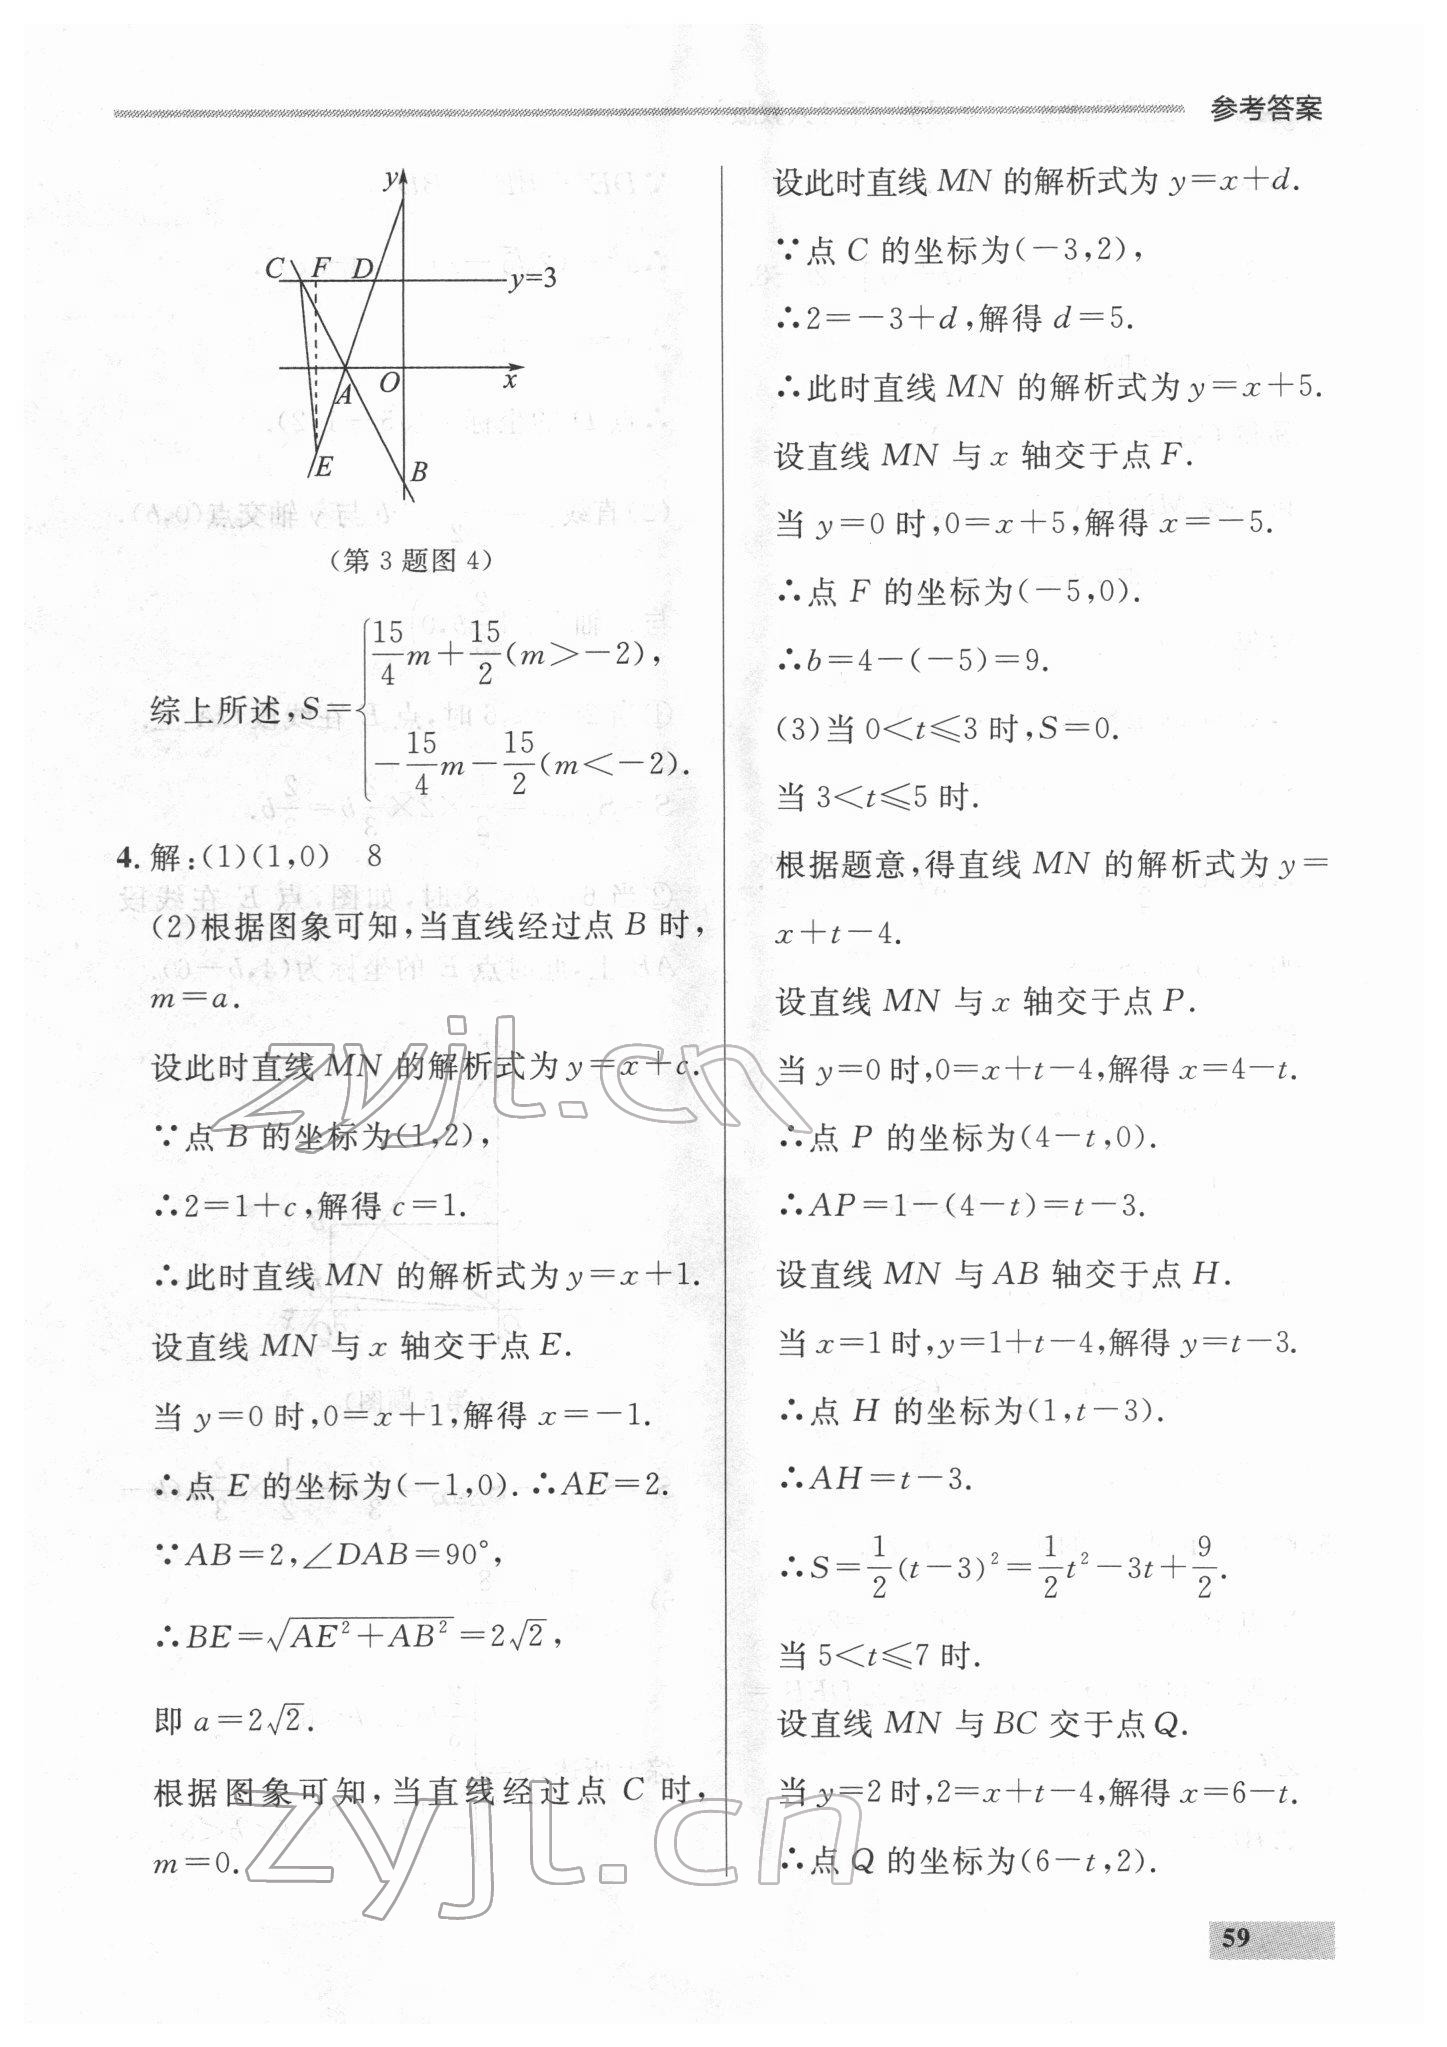 参考答案
y
C F D
y=3
A O x
E
B
(第3题图4)
综上所述,S={15/4 m+15/2(m>-2),
-15/4 m-15/2(m<-2).
4. 解:(1)(1,0) 8
(2)根据图象可知,当直线经过点B时,
m=a.
设此时直线MN的解析式为y=x+c.
∵点B的坐标为(1,2),
∴2=1+c,解得c=1.
∴此时直线MN的解析式为y=x+1.
设直线MN与x轴交于点E.
当y=0时,0=x+1,解得x=-1.
∴点E的坐标为(-1,0).∴AE=2.
∵AB=2,∠DAB=90°,
∴BE=√(AE²+AB²)=2√2,
即a=2√2.
根据图象可知,当直线经过点C时,
m=0.
设此时直线MN的解析式为y=x+d.
∵点C的坐标为(-3,2),
∴2=-3+d,解得d=5.
∴此时直线MN的解析式为y=x+5.
设直线MN与x轴交于点F.
当y=0时,0=x+5,解得x=-5.
∴点F的坐标为(-5,0).
∴b=4-(-5)=9.
(3)当0<t≤3时,S=0.
当3<t≤5时.
根据题意,得直线MN的解析式为y=
x+t-4.
设直线MN与x轴交于点P.
当y=0时,0=x+t-4,解得x=4-t.
∴点P的坐标为(4-t,0).
∴AP=1-(4-t)=t-3.
设直线MN与AB轴交于点H.
当x=1时,y=1+t-4,解得y=t-3.
∴点H的坐标为(1,t-3).
∴AH=t-3.
∴S=1/2(t-3)²=1/2t²-3t+9/2.
当5<t≤7时.
设直线MN与BC交于点Q.
当y=2时,2=x+t-4,解得x=6-t.
∴点Q的坐标为(6-t,2).
zyjl.cn
zyjl.cn
59